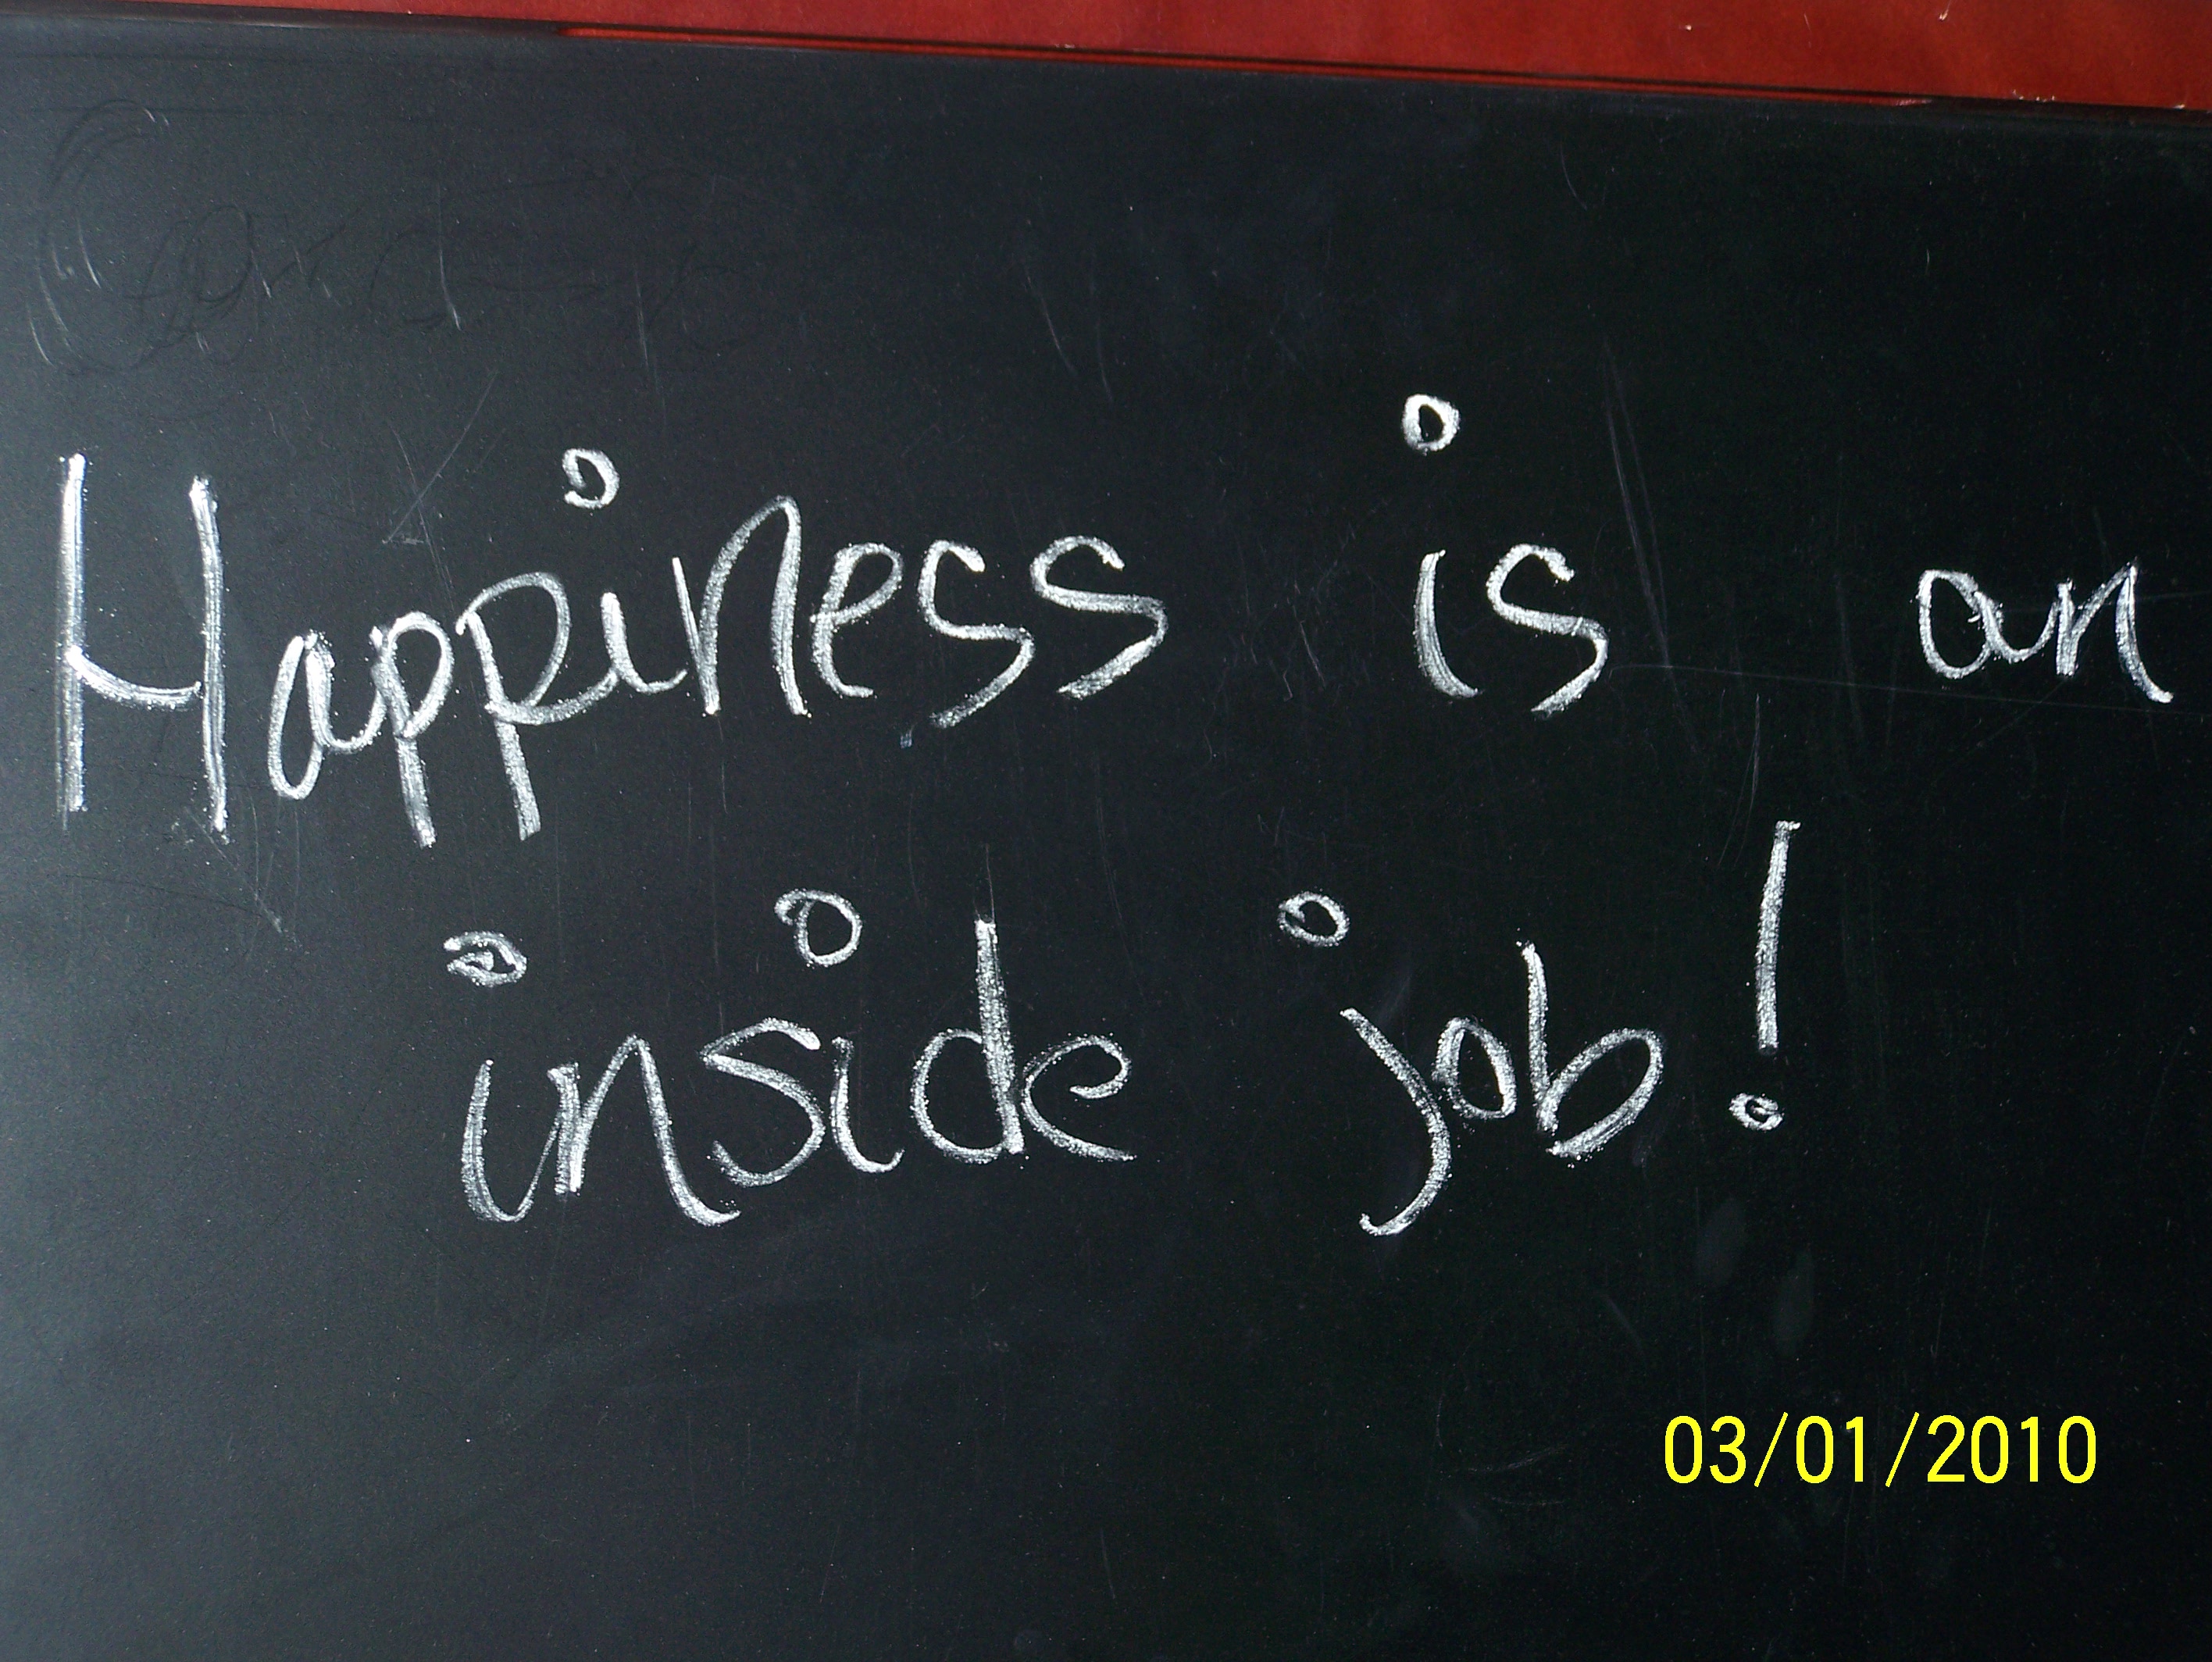 Happiness is an
inside job!
03/01/2010